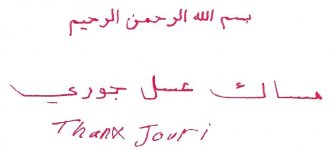 بسم الله الرحمن الرحيم
مساك عسل جوري
Thanx Jouri